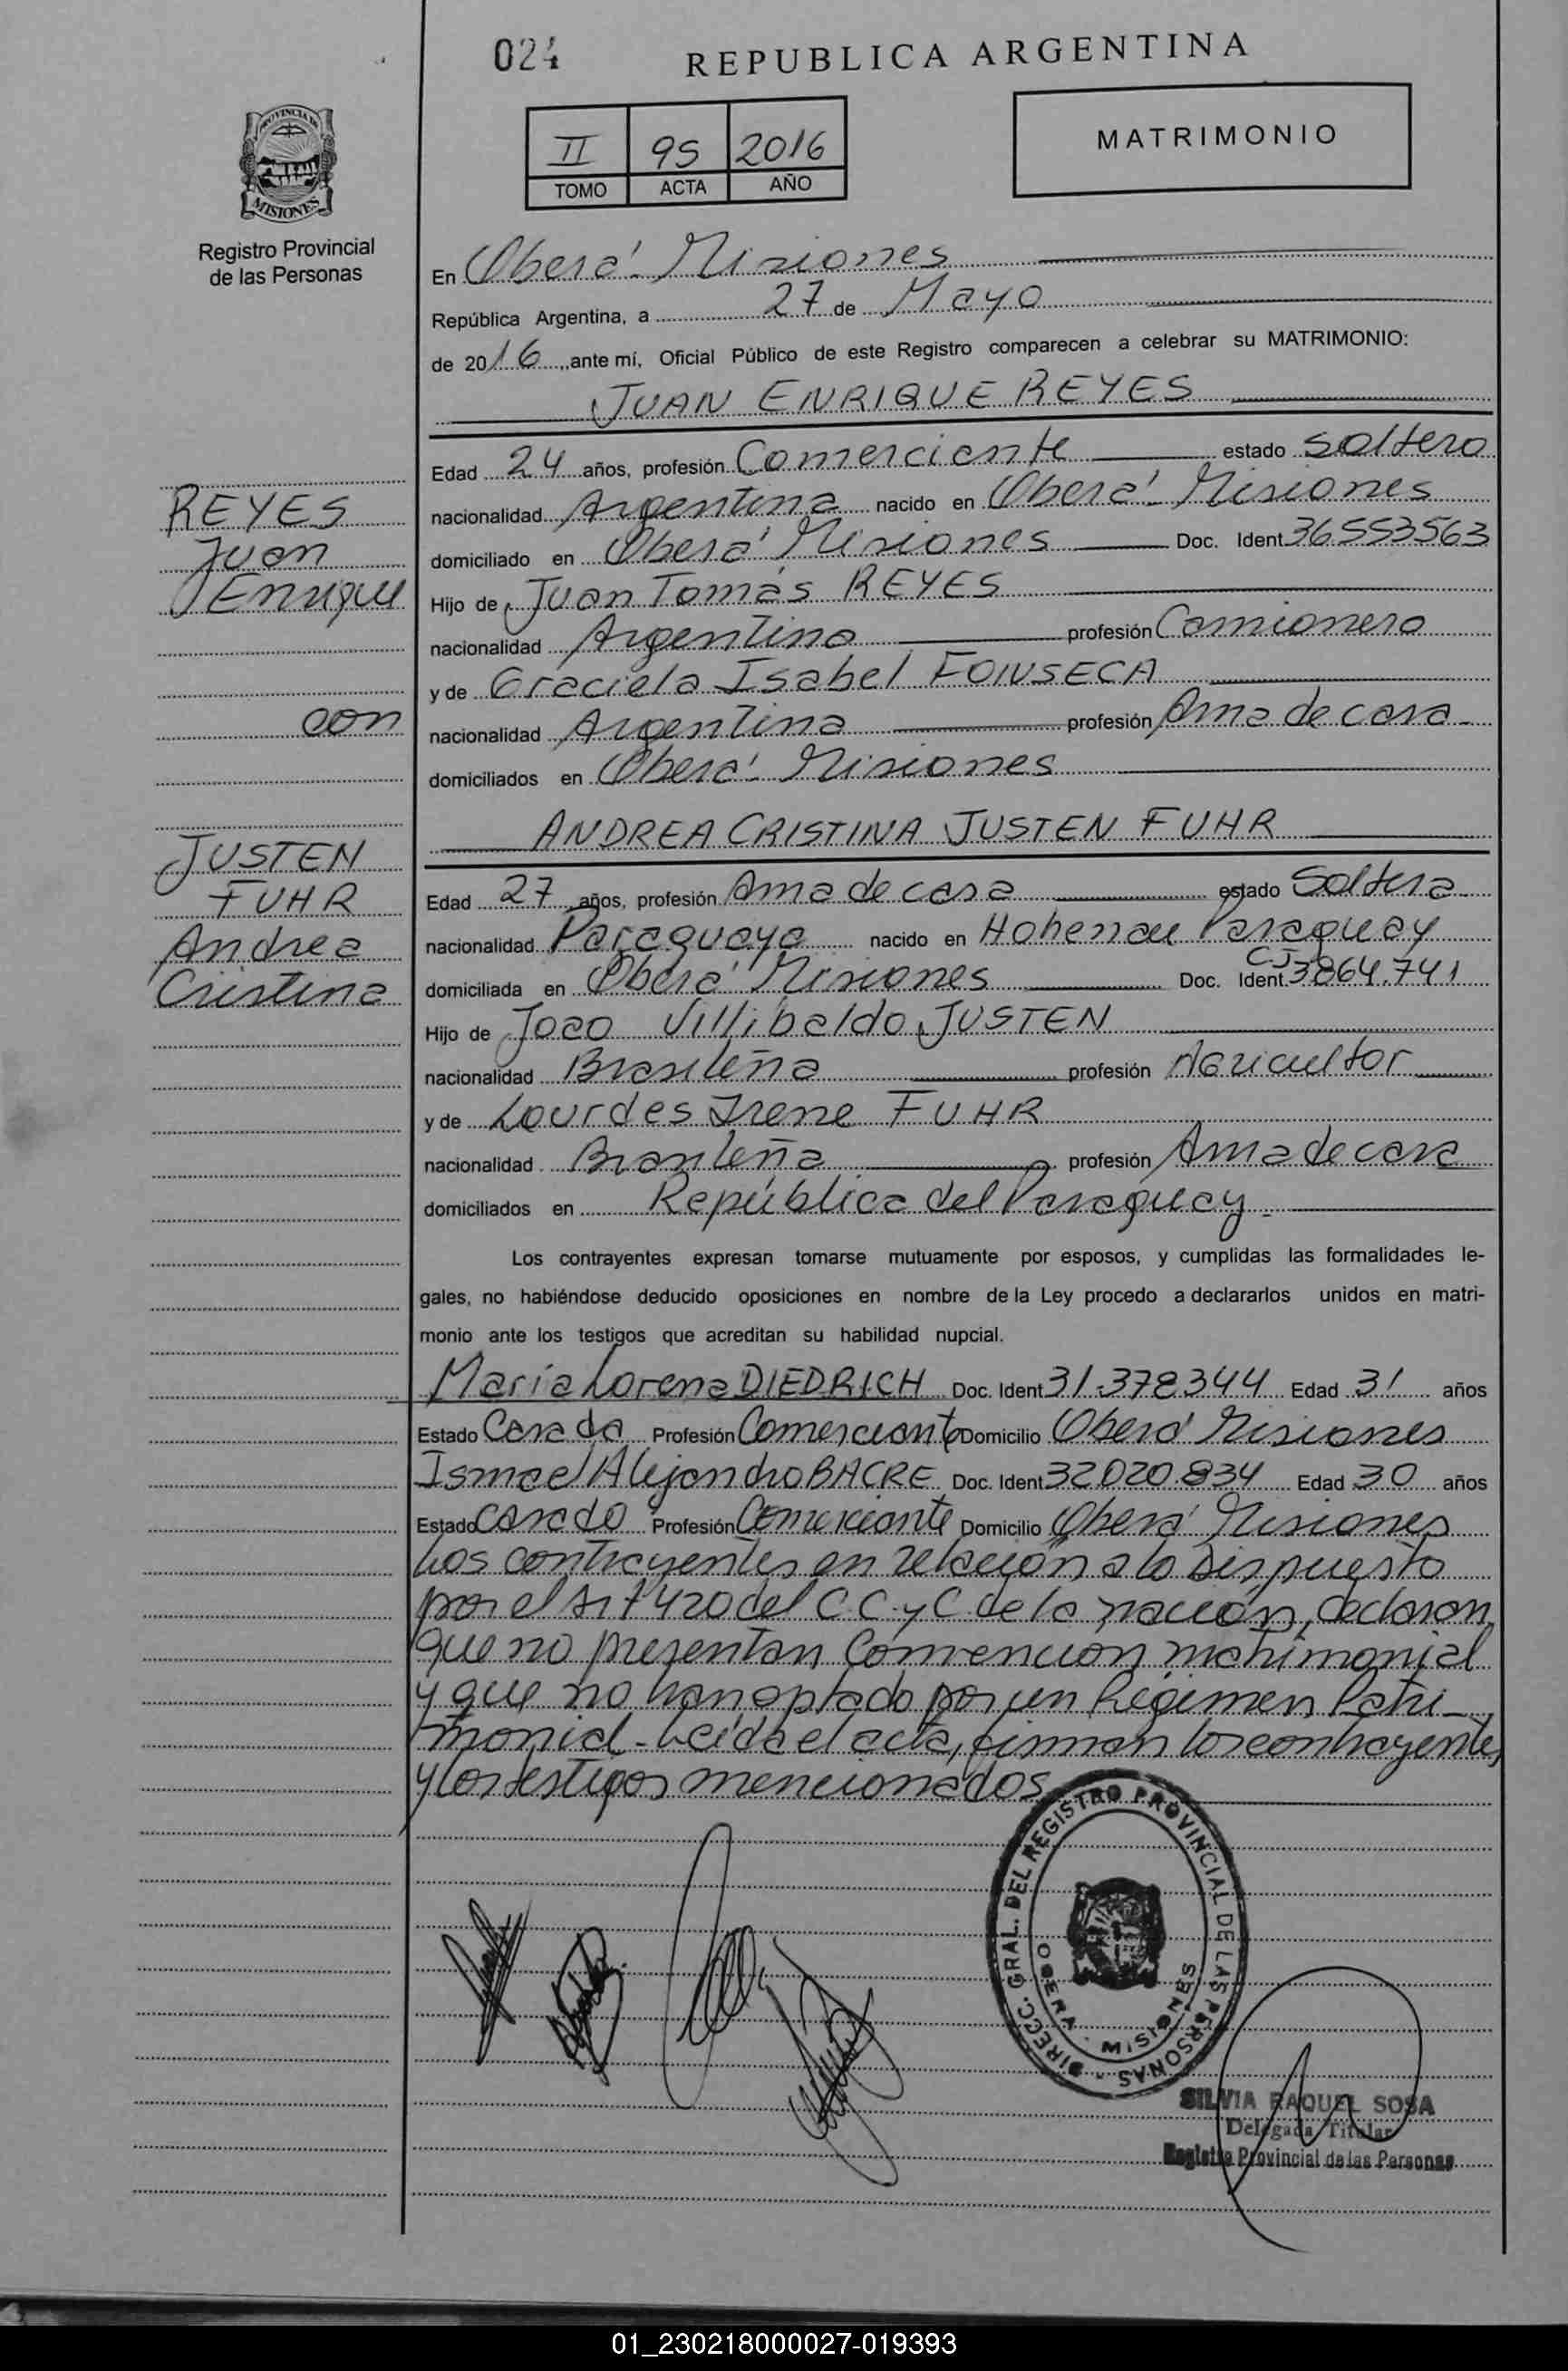 024
REPUBLICA ARGENTINA
II 95 2016
TOMO ACTA AÑO
MATRIMONIO
PROVINCIA DE
MISIONES
Registro Provincial
de las Personas
En Oberá - Misiones
República Argentina, a 27 de Mayo
de 2016, ante mí, Oficial Público de este Registro comparecen a celebrar su MATRIMONIO:
JUAN ENRIQUE REYES
Edad 24 años, profesión Comerciante estado soltero
nacionalidad Argentina nacido en Oberá - Misiones
domiciliado en Oberá Misiones Doc. Ident 36553563
Hijo de Juan Tomás REYES
nacionalidad Argentino profesión Camionero
y de Graciela Isabel FONSECA
nacionalidad Argentina profesión Ama de casa
domiciliados en Oberá - Misiones
REYES
Juan
Enrique
con
JUSTEN
FUHR
Andrea
Cristina
ANDREA CRISTINA JUSTEN FUHR
Edad 27 años, profesión Ama de casa estado Soltera
nacionalidad Paraguaya nacido en Hohenau Paraguay
domiciliada en Oberá Misiones Doc. Ident 3864.741
Hijo de Joao Villibaldo JUSTEN
nacionalidad Brasileña profesión Agricultor
y de Lourdes Irene FUHR
nacionalidad Brasileña profesión Ama de casa
domiciliados en República del Paraguay.
Los contrayentes expresan tomarse mutuamente por esposos, y cumplidas las formalidades le-
gales, no habiéndose deducido oposiciones en nombre de la Ley procedo a declararlos unidos en matri-
monio ante los testigos que acreditan su habilidad nupcial.
Maria Lorena DIEDRICH Doc. Ident 31.378344 Edad 31 años
Estado Casada Profesión Comerciante Domicilio Oberá Misiones
Ismael Alejandro BACRE Doc. Ident 32020.834 Edad 30 años
Estado Casado Profesión Comerciante Domicilio Oberá Misiones
Los contrayentes en relación a lo dispuesto
por el Art 420 del C.C.y C. de la nación, declaran
que no presentan Convencion matrimonial
y que no han optado por un Regimen Patri-
monial - Leída el acta, firman los contrayentes
y los testigos mencionados
DIRECC. GRAL. DEL REGISTRO PROVINCIAL DE LAS PERSONAS
OBERA - MISIONES
SILVIA RAQUEL SOSA
Delegada Titular
Registro Provincial de las Personas
01_230218000027-019393